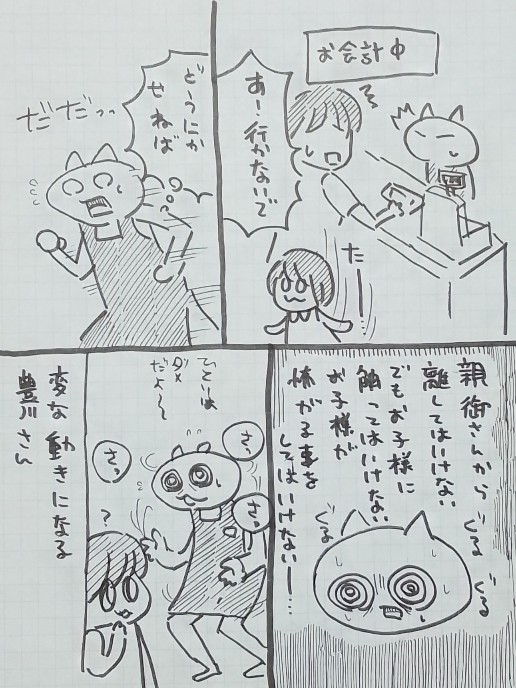 お会計中
あー！行かないで
たー!!
どうにか
せねば
だだだっっ
親御さんから
離してはいけない
でもお子様に
触ってはいけない
お子様が
怖がる事を
してはいけないー!…
ぐる
ぐる
ぐる
ひとりは
ダメ
だよ〜
さっ
さっ
さっ
?
変な動きになる
豊川さん